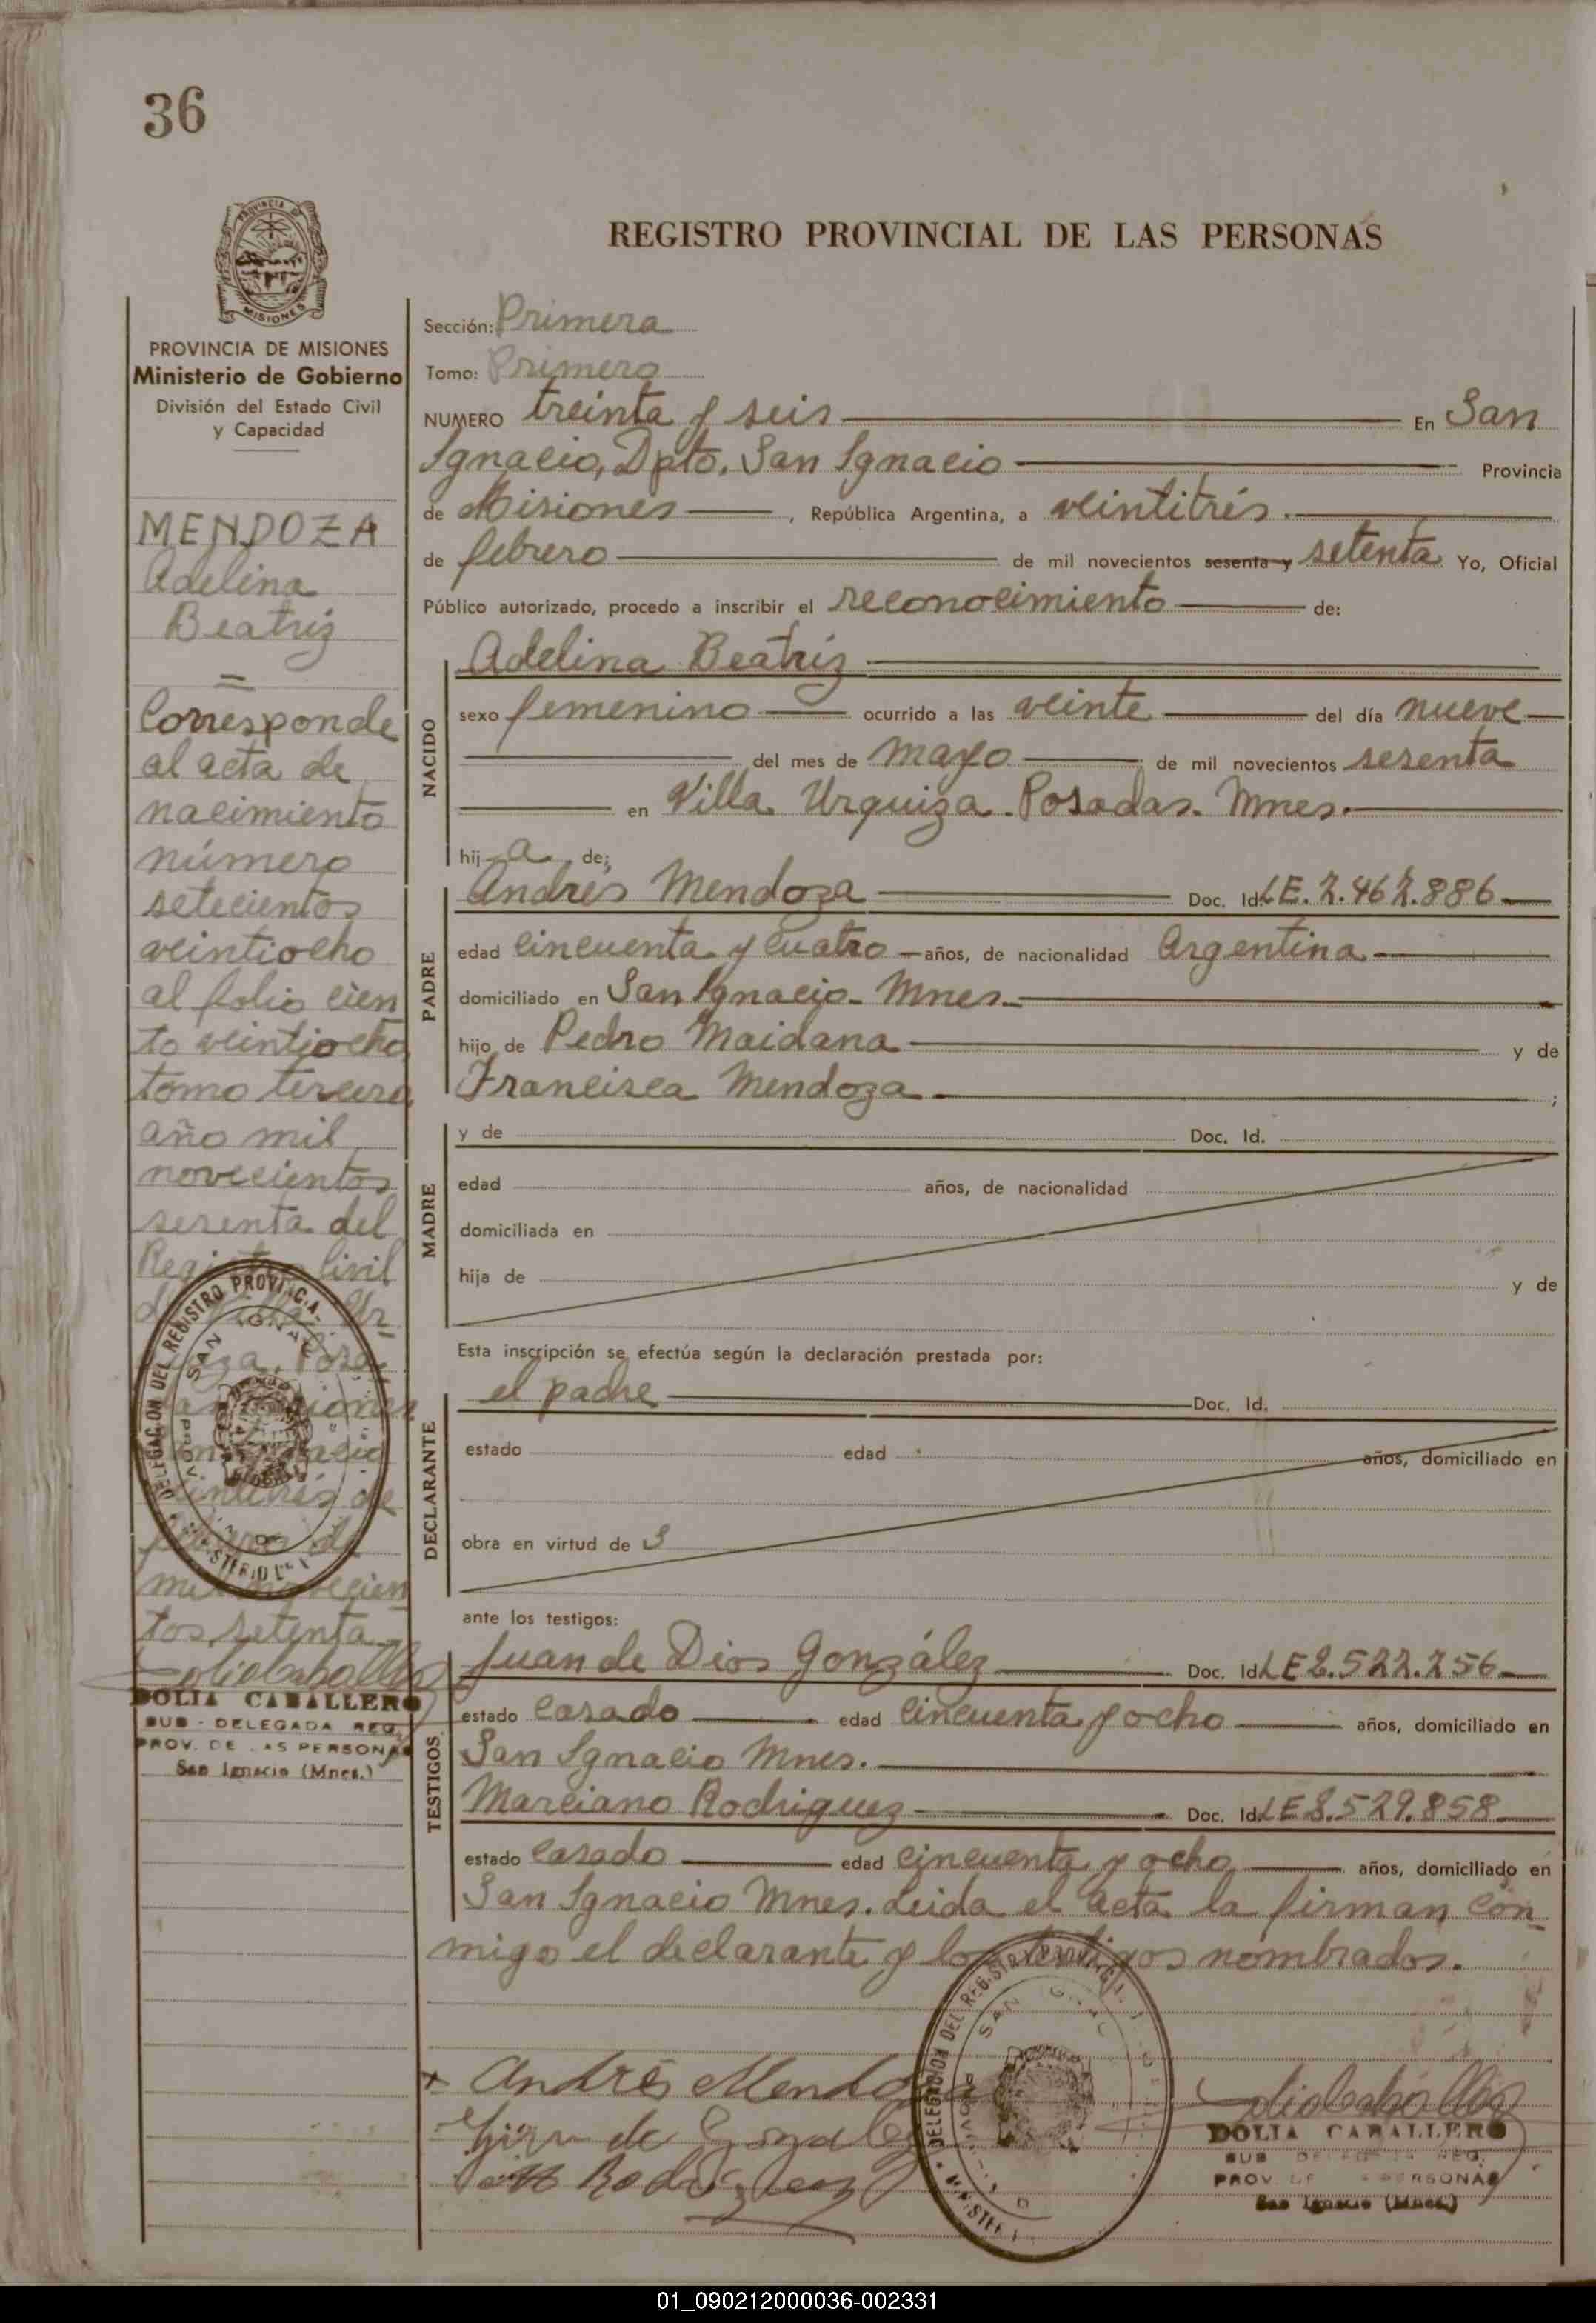 36
REGISTRO PROVINCIAL DE LAS PERSONAS
PROVINCIA DE
MISIONES
PROVINCIA DE MISIONES
Ministerio de Gobierno
División del Estado Civil
y Capacidad
MENDOZA
Adelina
Beatriz
=
Corresponde
al acta de
nacimiento
número
setecientos
veintiocho
al folio cien
to veintiocho
tomo tercero
año mil
novecientos
sesenta del
Registro Civil
de Villa Ur-
quiza, Posa
das Misiones
San Ignacio
veintitrés de
febrero de
mil novecien
tos setenta
DOLIA CABALLERO
SUB - DELEGADA REG.
PROV. DE LAS PERSONAS
San Ignacio (Mnes.)
Sección: Primera
Tomo: Primero
NUMERO treinta y seis En San
Ignacio, Dpto. San Ignacio Provincia
de Misiones, República Argentina, a veintitrés.
de febrero de mil novecientos sesenta y setenta Yo, Oficial
Público autorizado, procedo a inscribir el reconocimiento de:
NACIDO
Adelina Beatriz
sexo femenino ocurrido a las veinte del día nueve
del mes de mayo de mil novecientos sesenta
en Villa Urquiza. Posadas. Mnes.
hij a de:
PADRE
Andrés Mendoza Doc. Id. LE. 2.462.886
edad cincuenta y cuatro años, de nacionalidad Argentina
domiciliado en San Ignacio. Mnes.
hijo de Pedro Maidana y de
Francisca Mendoza ;
MADRE
y de Doc. Id.
edad años, de nacionalidad
domiciliada en
hija de y de
Esta inscripción se efectúa según la declaración prestada por:
DECLARANTE
el padre Doc. Id.
estado edad años, domiciliado en
obra en virtud de
ante los testigos:
TESTIGOS
Juan de Dios González Doc. Id. LE 2.522.256
estado casado edad cincuenta y ocho años, domiciliado en
San Ignacio Mnes.
Marciano Rodriguez Doc. Id. LE 8.529.858
estado casado edad cincuenta y ocho años, domiciliado en
San Ignacio Mnes. Leida el acta la firman con
migo el declarante y los testigos nombrados.
Andrés Mendoza
de Gonzalez
Rodriguez
DELEGACION DEL REGISTRO PROVINCIAL
SAN IGNACIO
DOLIA CABALLERO
SUB DELEGADA REG.
PROV. DE LAS PERSONAS
San Ignacio (Mnes.)
01_090212000036-002331